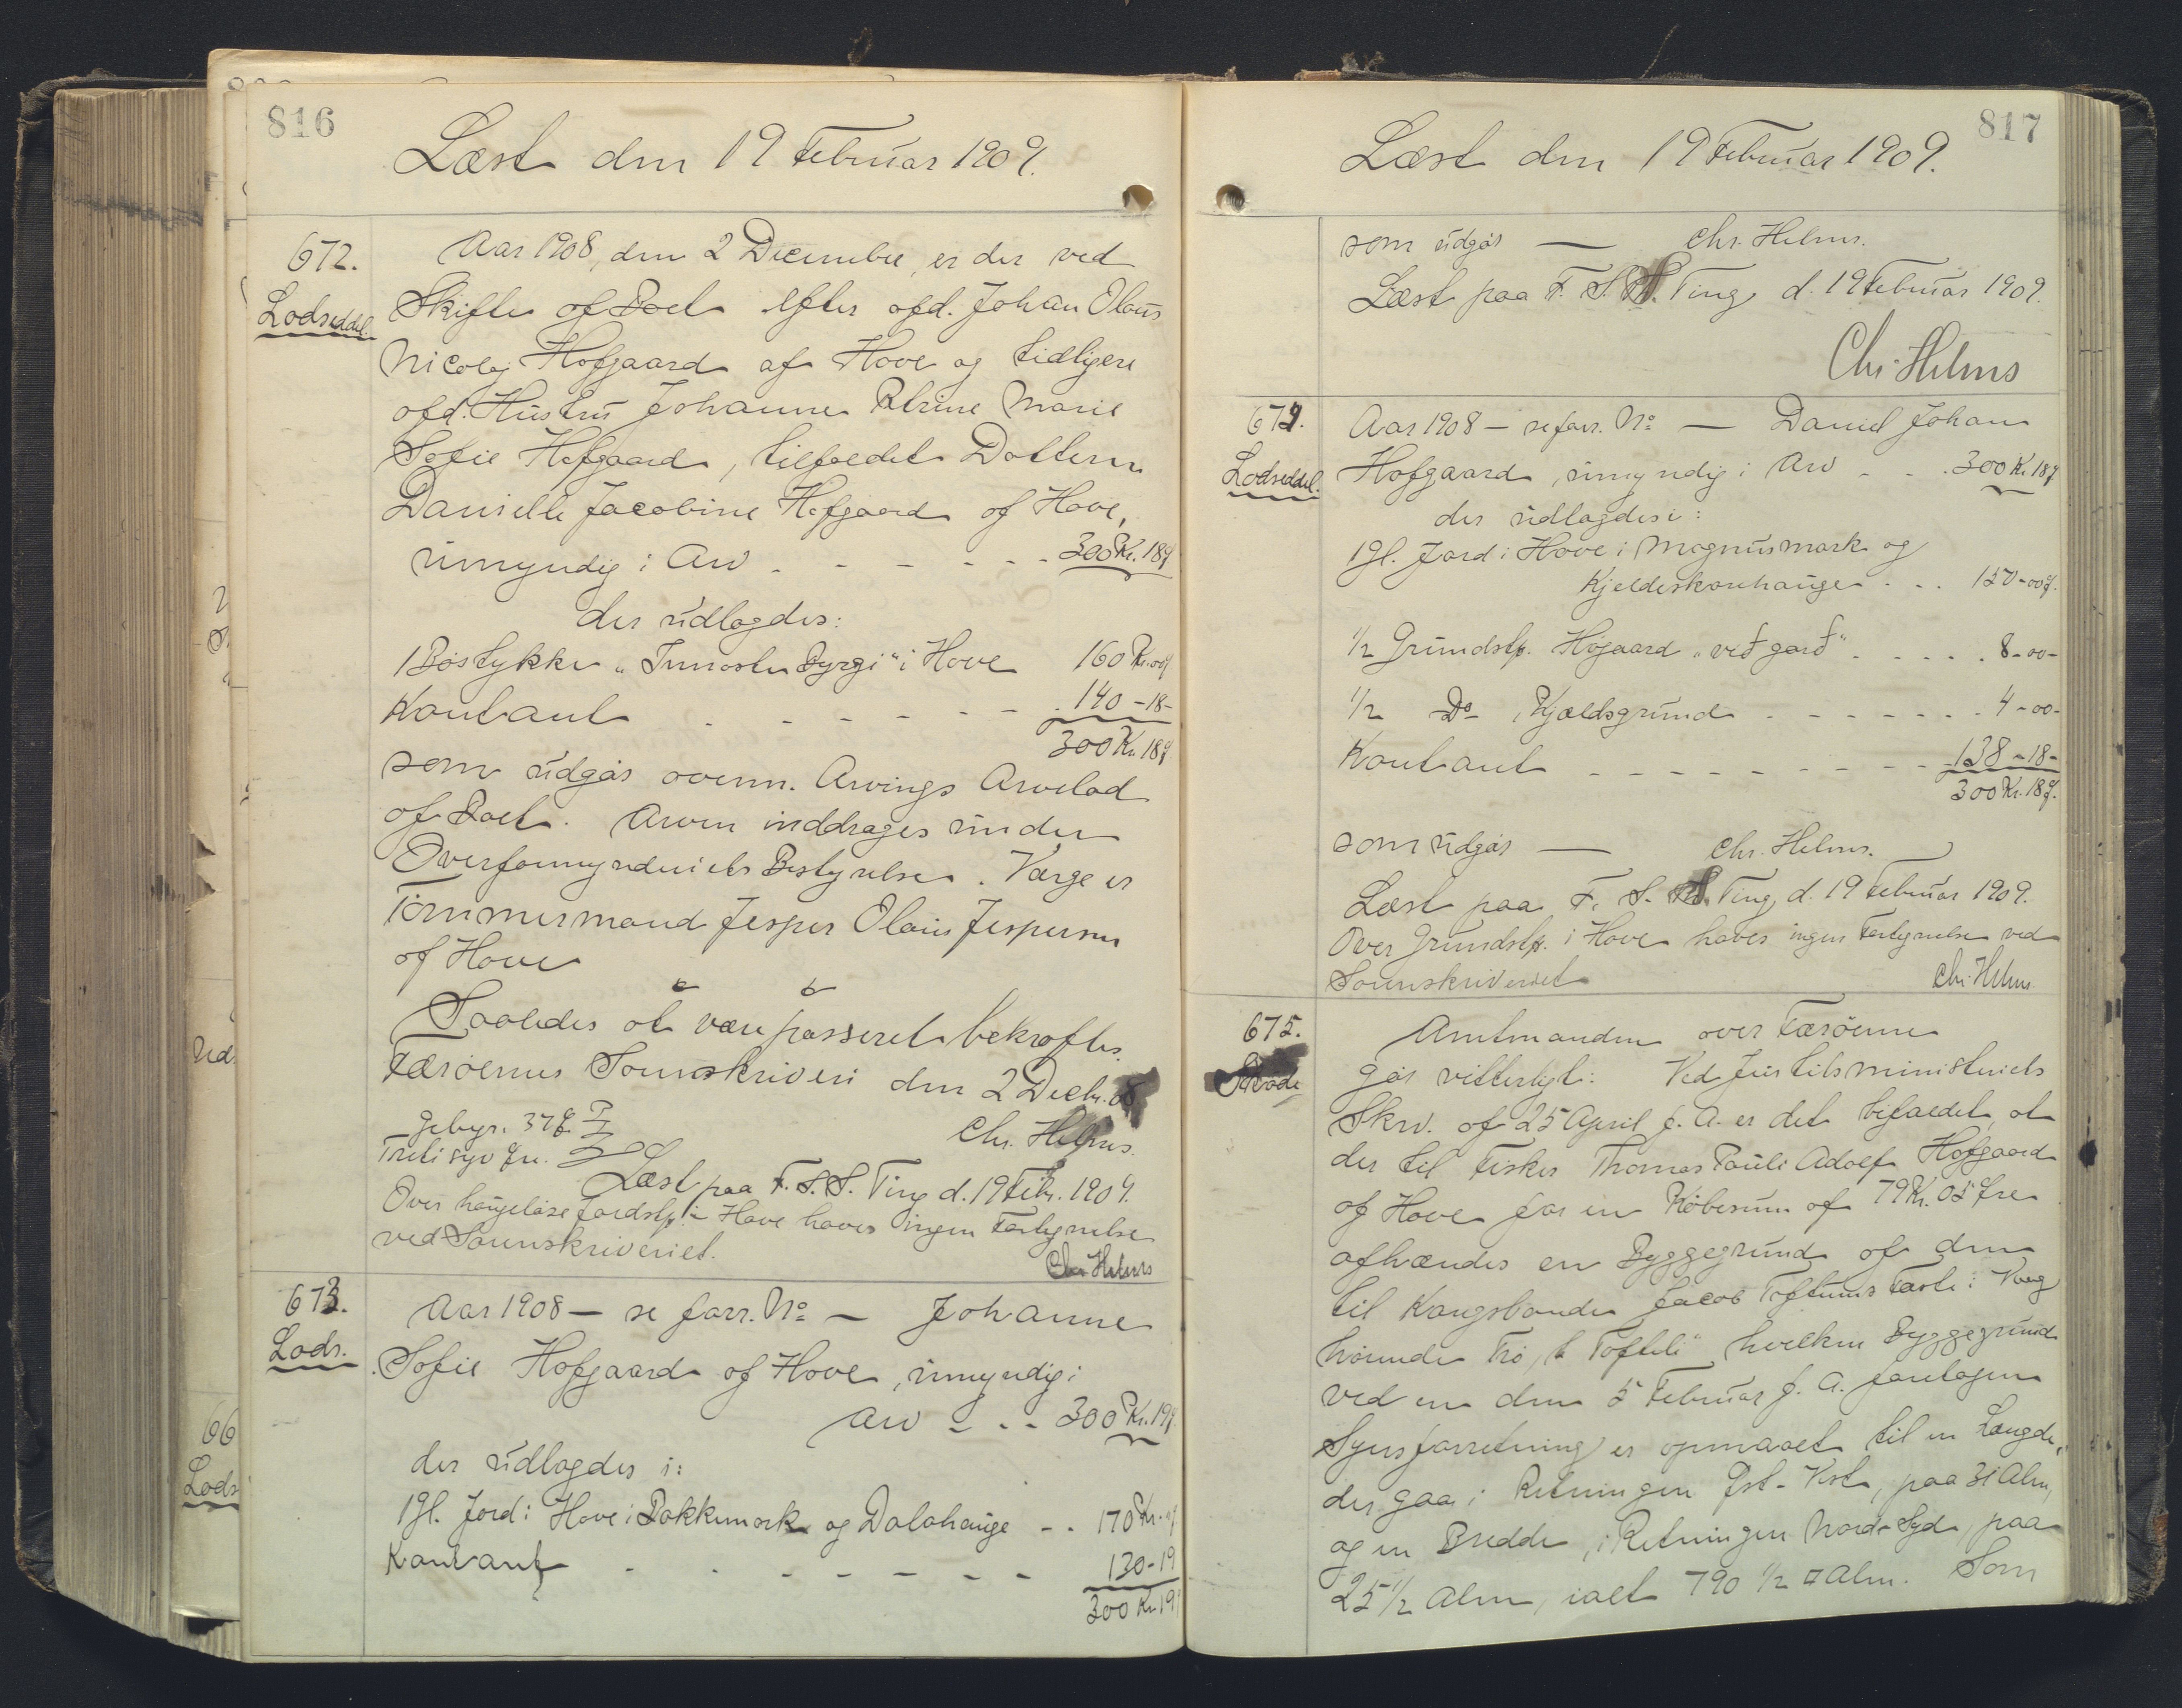 816
Læst den 19 Februar 1909.
672.
Lodseddel.
Aar 1908, den 2 December, er der ved
Skifte af Boet efter afd. Johan Olaus
Nicolaj Hofgaard af Hove og tidligere
afd. Hustru Johanne Petrine Marie
Sofie Hofgaard, tilfaldet Datteren
Danielle Jacobine Hofgaard af Hove,
umyndig i Arv - - - - - - 300 Kr. 18 ø
der udlagdes:
1 Bøstykke "Innasta Byrgi" i Hove 160 Kr. 00 ø
Kontant - - - - - - 140 - 18 -
300 Kr 18 ø
som udgør ovenn. Arvings Arvelod
af Boet. Arven inddrages under
Overformynderiets Bestyrelse. Værge er
Tømmermand Jesper Olaus Jespersen
af Hove
Saaledes at være passeret bekræftes.
Færøernes Sorenskriveri den 2 Decbr. 08
Gebyr. 37 ø
Treti syv Øre.
Chr. Helms.
Læst paa F. S. S. Ting d. 19 Febr. 1909.
Over haugeløse Jordstp. i Hove haves ingen Fastegnelse
ved Sorenskriveriet.
Chr Helms
673.
Lods.
Aar 1908 — se forr. No — Johanne
Sofie Hofgaard af Hove, umyndig i
Arv - - - 300 Kr. 19 ø
der udlagdes i:
1 Gl. Jord i Hove i Bakkemark og Dalahauge - - 170 Kr. - ø
Kontant - - - - - - - 130 - 19
300 Kr 19 ø
817
Læst den 19 Februar 1909.
som udgør — Chr. Helms.
Læst paa F. S. S. Ting d. 19 Februar 1909.
Chr. Helms
674.
Lodseddel.
Aar 1908 — se forr. No — Daniel Johan
Hofgaard, umyndig i Arv - - . 300 Kr 18 ø
der udlagdes i:
1 Gl. Jord i Hove i Magnusmark og
Kjeldeskorehauge - - - 150 - 00 ø.
1/2 Grundstp. Høgaard "við garð" - - - - . 8 - 00 -
1/2 Do Kjældsgrund - - - - - - 4 - 00 -
Kontant - - - - - - - - - 138 - 18 -
300 Kr. 18 ø.
som udgør — Chr. Helms.
Læst paa F. S. S. Ting d. 19 Februar 1909.
Over Grundstp. i Hove haves ingen Fastegnelse ved
Sorenskriveriet
Chr. Helms
675.
Skøde
Amtmanden over Færøerne
gør vitterligt: Ved Justitsministeriets
Skriv. af 25 April f. A. er det bifaldet, at
der til Fisker Thomas Pauli Adolf Hofgaard
af Hove for en Købesum af 79 Kr. 05 Øre
afhændes en Byggegrund af den
til Kongsbonde Jacob Toftums Fæste i Vaag
hørende Trø, "Tofteli" hvilken Byggegrund
ved en den 5 Februar f. A. foretagen
Synsforretning er opmaalt til en Længde,
der gaar i Retningen Øst-Vest, paa 31 Alen,
og en Bredde, i Retningen Nord-Syd, paa
25 1/2 Alen, ialt 790 1/2 □ Alen. Som